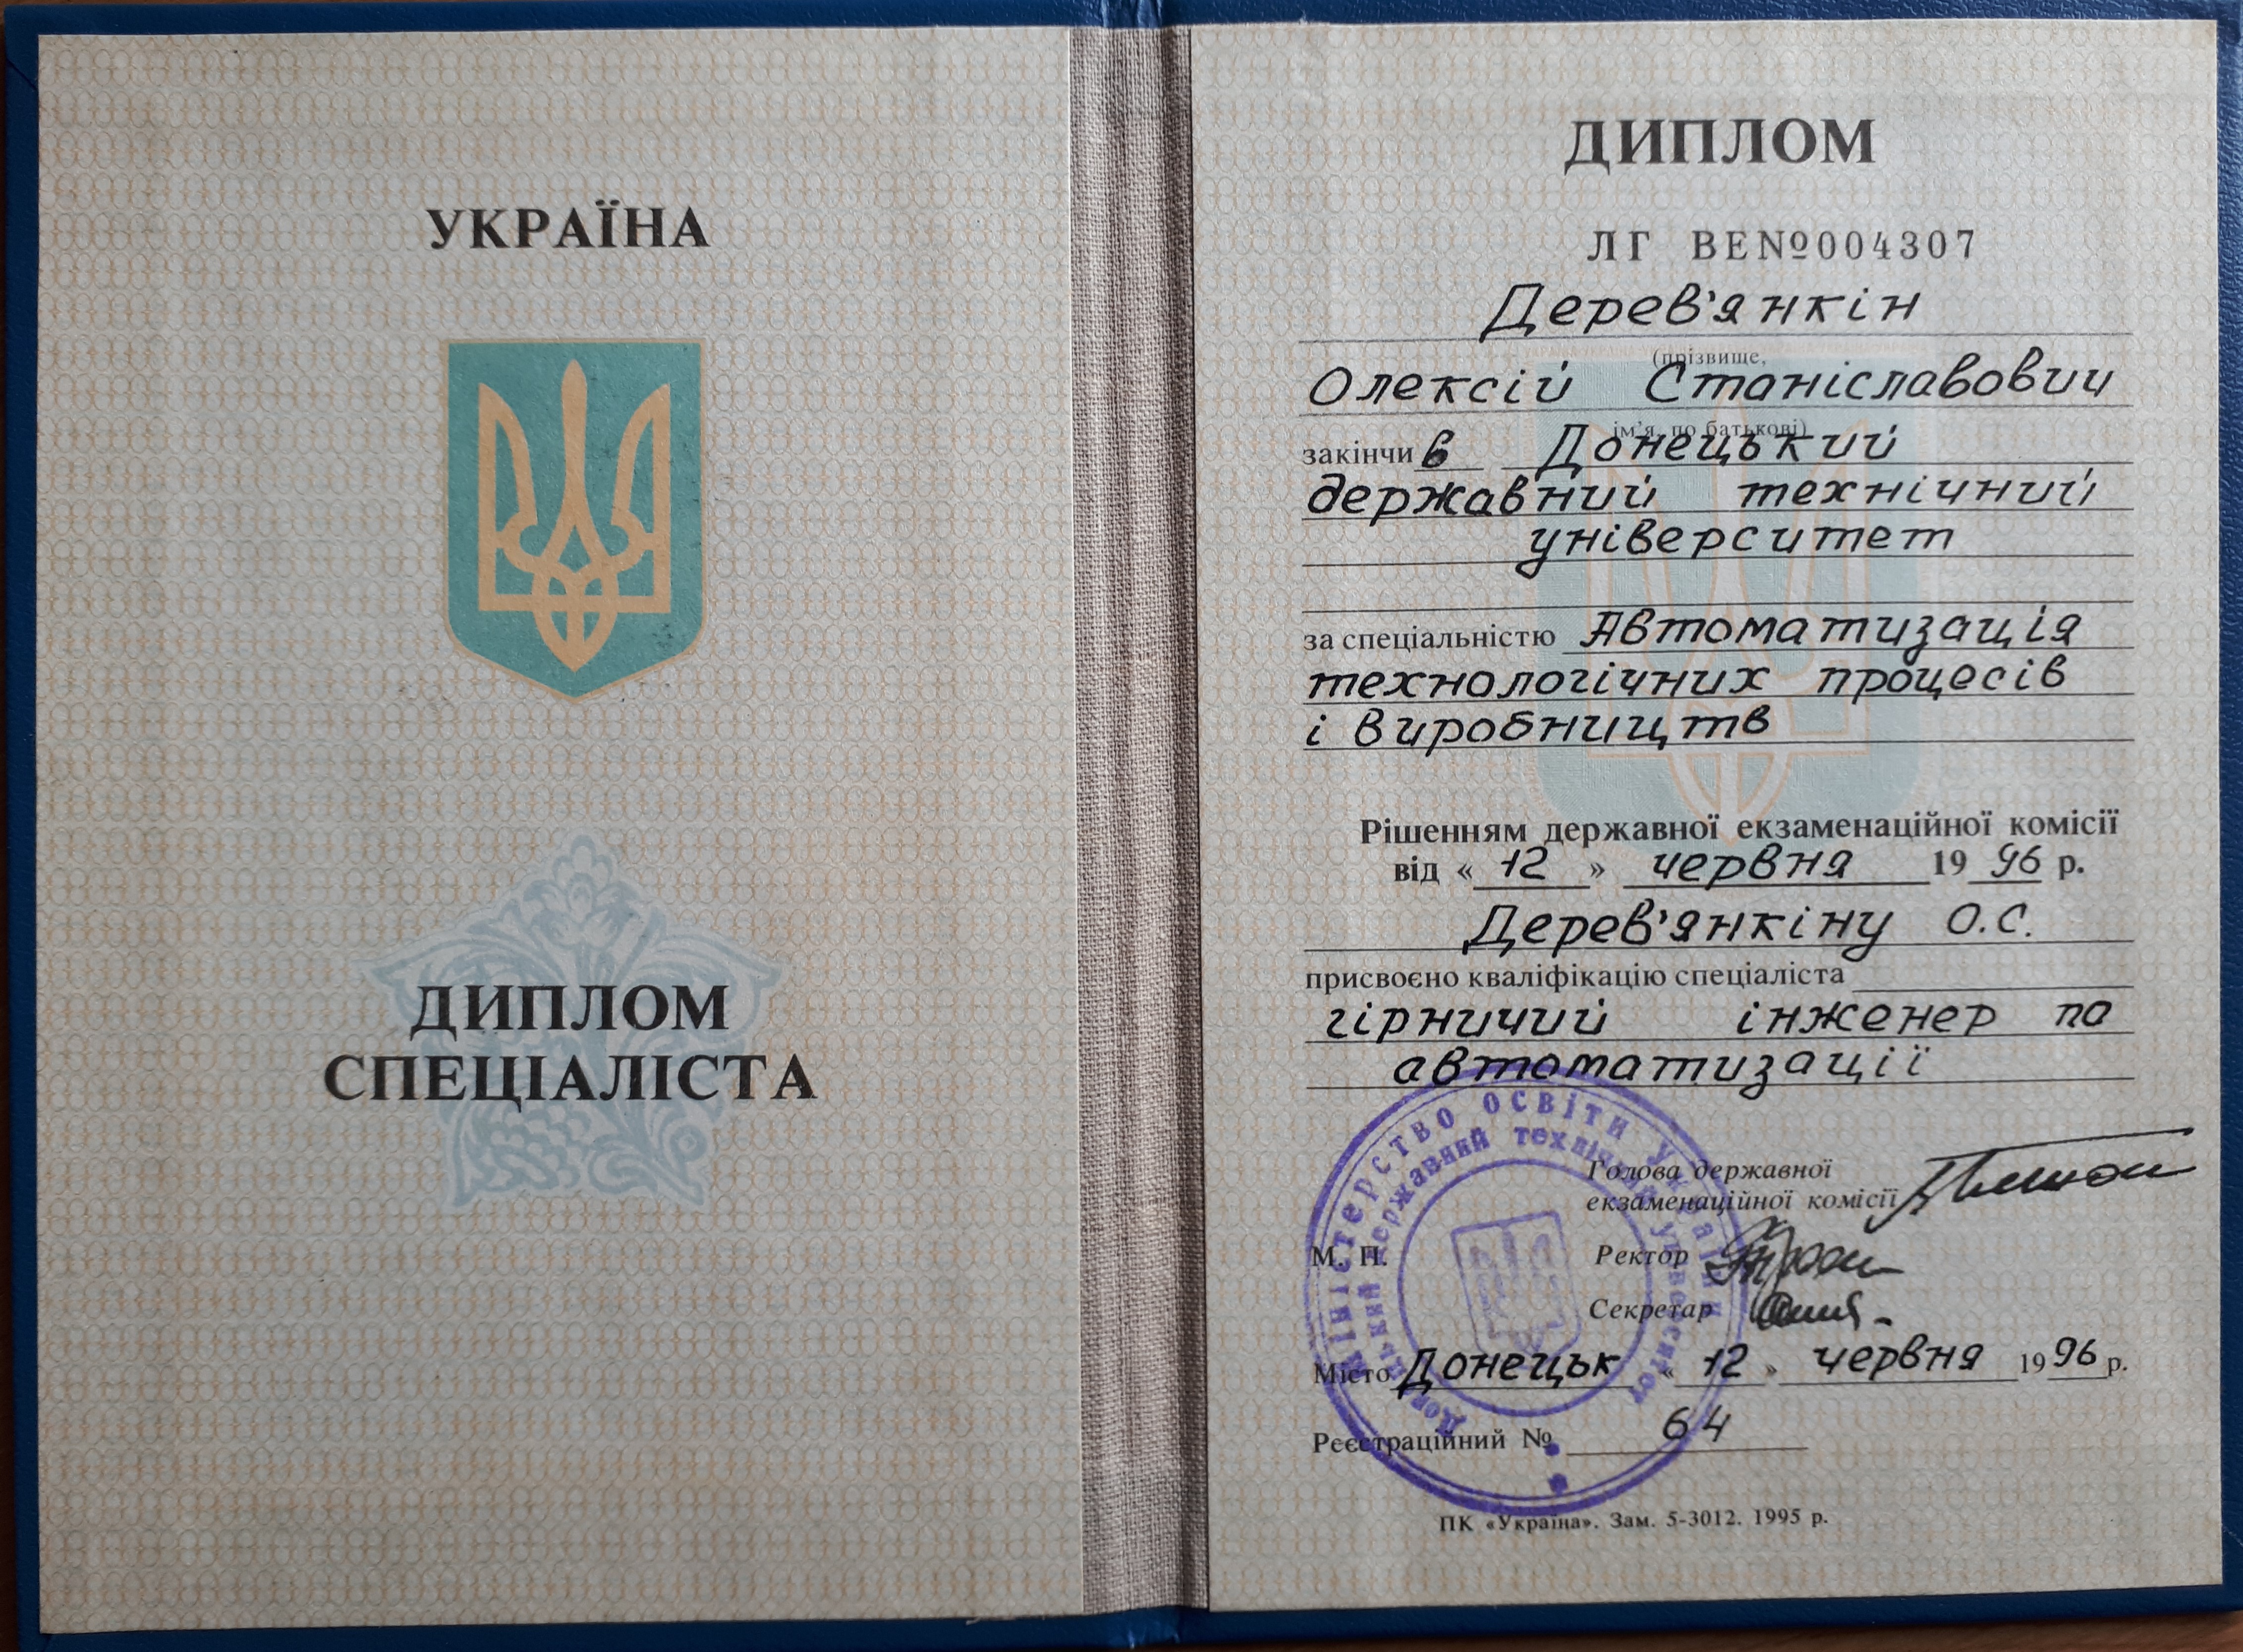 УКРАЇНА
ДИПЛОМ
СПЕЦІАЛІСТА
ДИПЛОМ
ЛГ ВЕ№004307
Дерев'янкін
(прізвище,
Олексій Станіславович
ім'я, по батькові)
закінчив Донецький
державний технічний
університет
за спеціальністю Автоматизація
технологічних процесів
і виробництв
Рішенням державної екзаменаційної комісії
від «12» червня 1996 р.
Дерев'янкіну О.С.
присвоєно кваліфікацію спеціаліста
гірничий інженер по
автоматизації
Міністерство освіти України
Донецький державний технічний університет
Голова державної
екзаменаційної комісії
М. П.
Ректор
Секретар
Місто Донецьк «12» червня 1996 р.
Реєстраційний № 64
ПК «Україна». Зам. 5-3012. 1995 р.